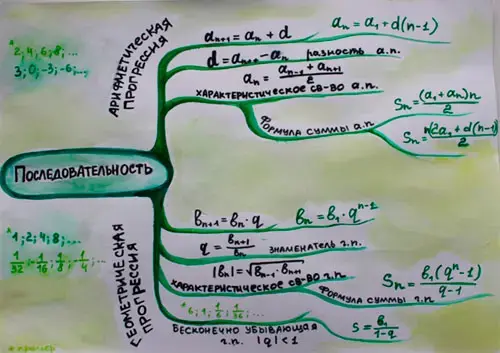 Последовательность
Арифметическая
прогрессия
*2; 4; 6; 8; ...
3; 0; -3; -6; ...
aₙ₊₁ = aₙ + d
aₙ = a₁ + d(n-1)
d = aₙ₊₁ - aₙ разность а.п.
aₙ = (aₙ₋₁ + aₙ₊₁)/2
характеристическое св-во а.п.
Формула суммы а.п.
Sₙ = (a₁ + aₙ)n/2
Sₙ = n(2a₁ + d(n-1))/2
Геометрическая
прогрессия
*1; 2; 4; 8; ...
1/32; -1/16; 1/8; -1/4; ...
bₙ₊₁ = bₙ · q
bₙ = b₁ · qⁿ⁻¹
q = bₙ₊₁/bₙ знаменатель г.п.
|bₙ| = √(bₙ₋₁ · bₙ₊₁)
характеристическое св-во г.п.
Формула суммы г.п.
Sₙ = b₁(qⁿ-1)/(q-1)
*6; 1; 1/6; 1/36; ...
бесконечно убывающая
г.п. |q|<1
S = b₁/(1-q)